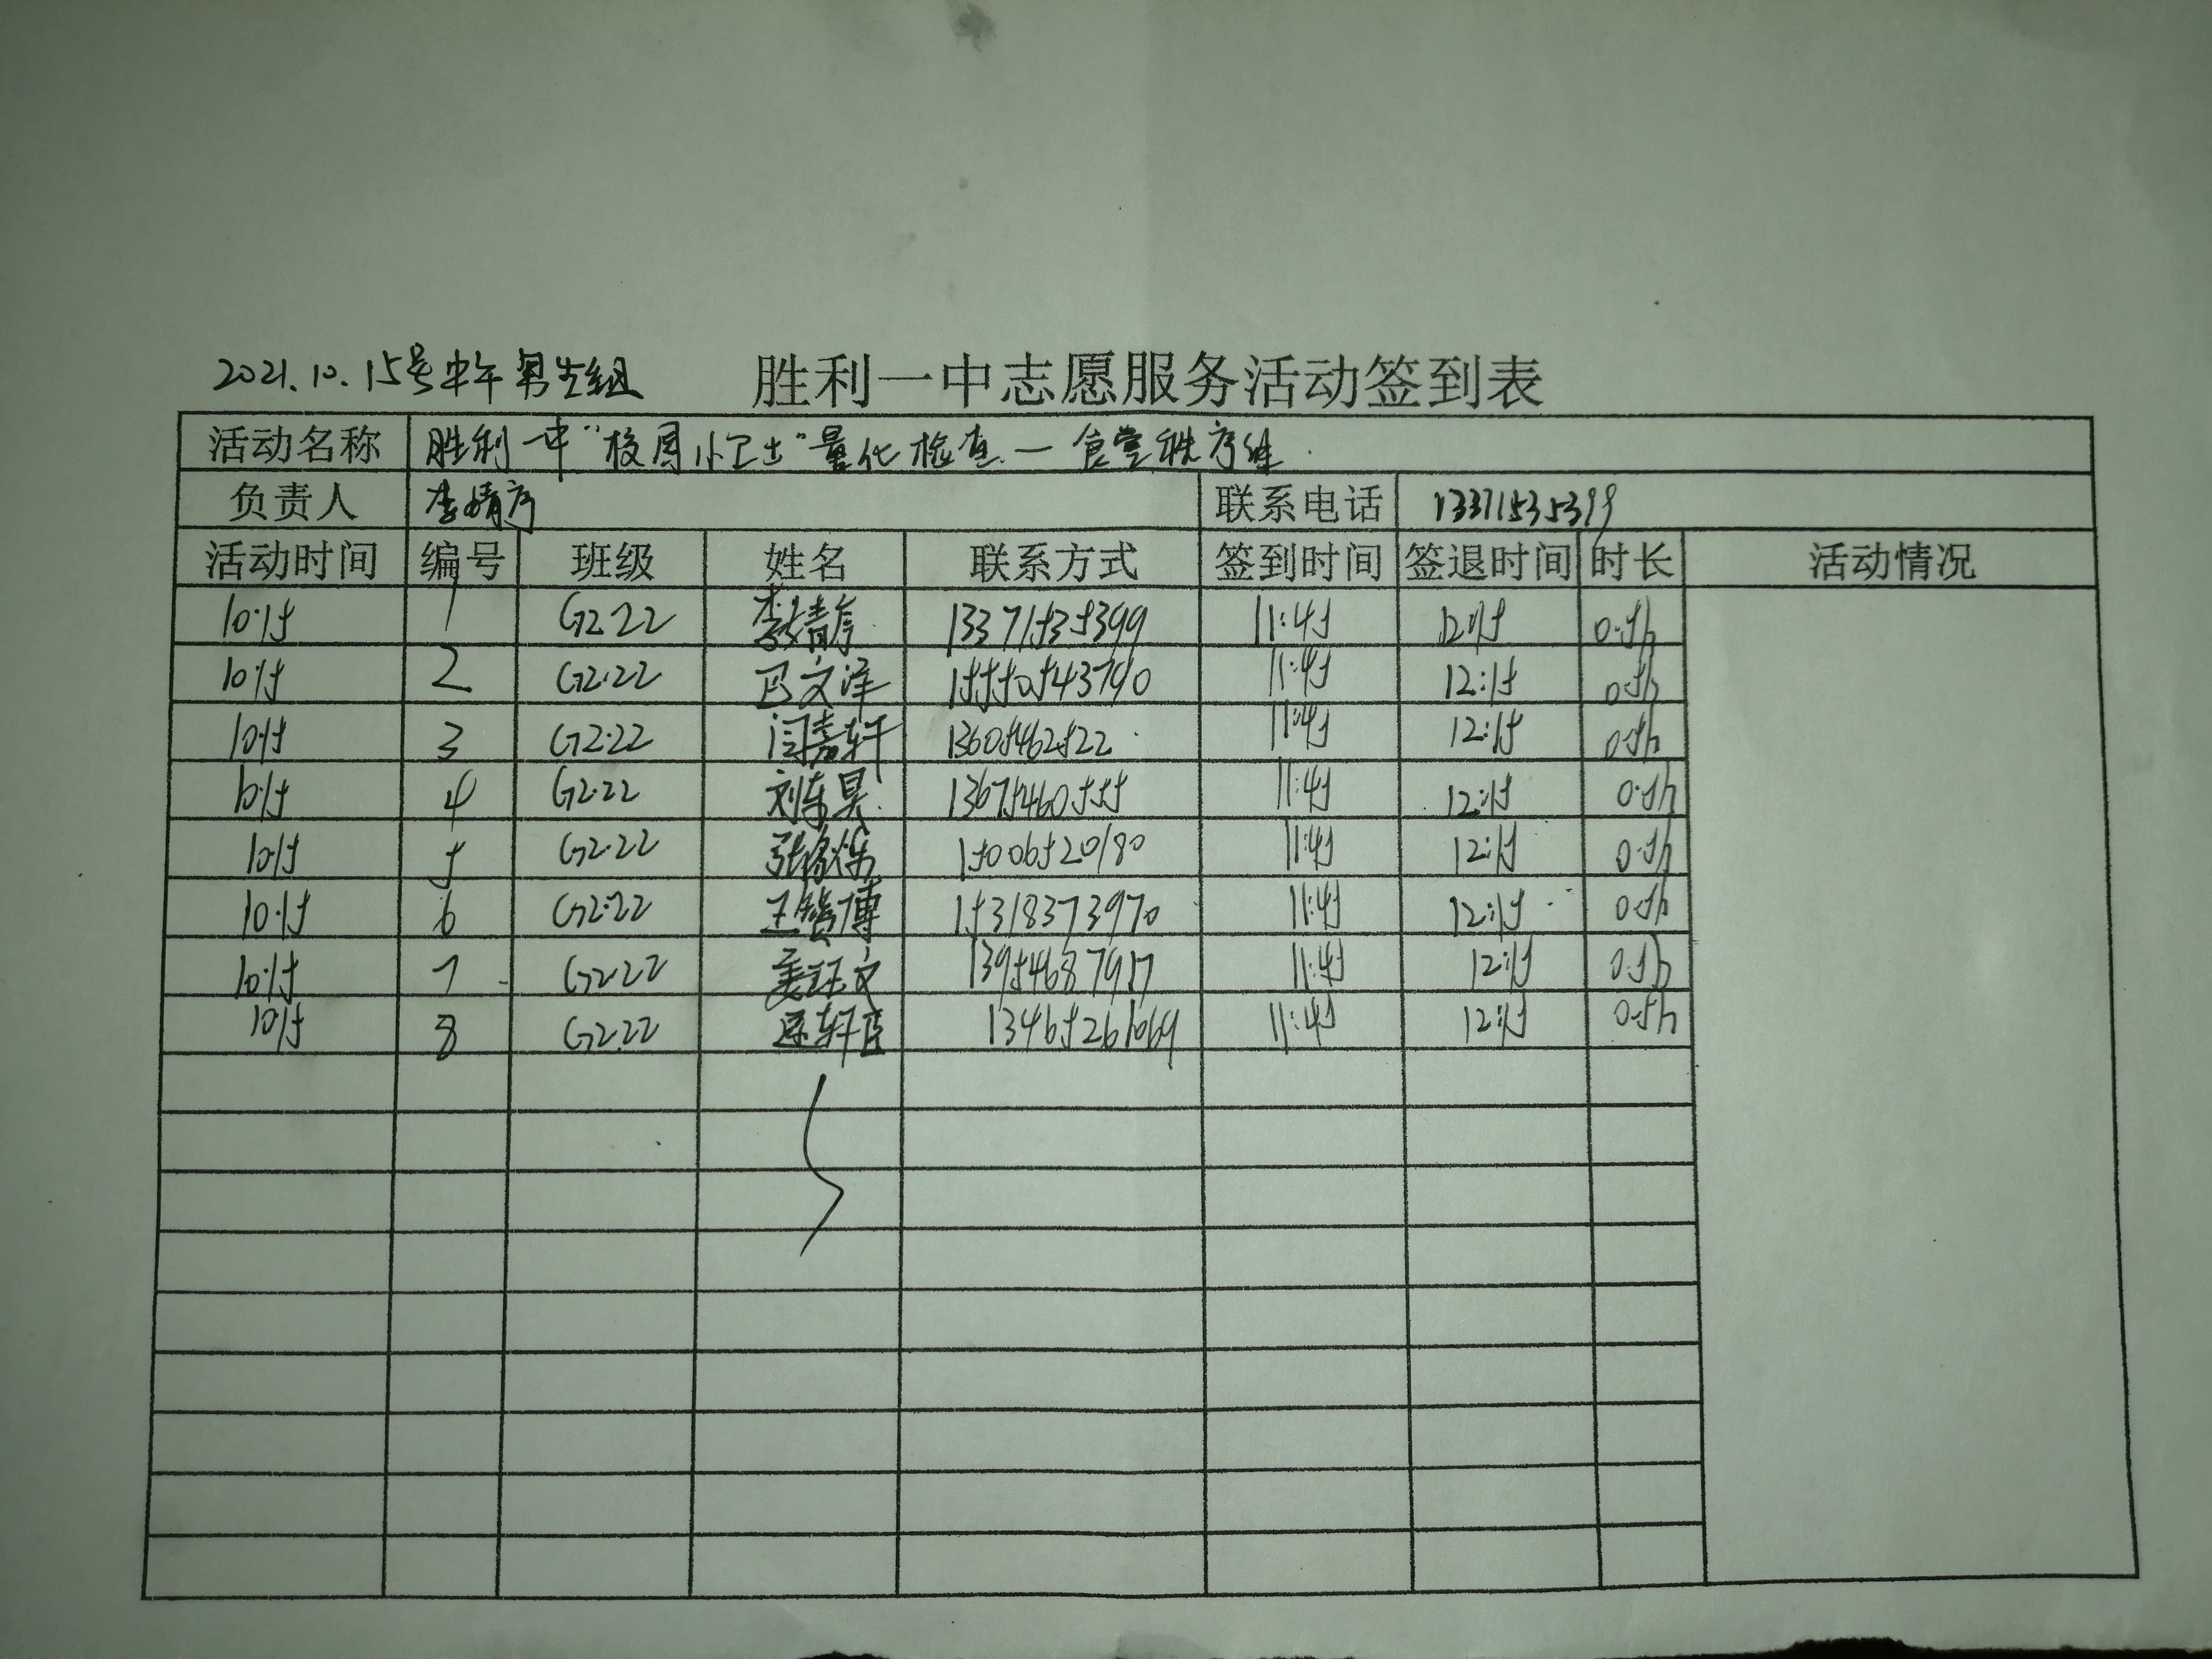 2021.10.15号中午男生组 胜利一中志愿服务活动签到表
活动名称 胜利一中"校园小卫士"量化检查—食堂秩序维
负责人 李婧彦 联系电话 13371535399
活动时间 编号 班级 姓名 联系方式 签到时间 签退时间 时长 活动情况
10.15 1 G2.22 13371535399 11:45 12:15 0.5h
10.15 2 G2.22 巴文泽 15550543790 11:45 12:15 0.5h
10.15 3 G2.22 闫嘉轩 13605462522 11:45 12:15 0.5h
10.15 4 G2.22 刘东昊 13675460555 11:45 12:15 0.5h
10.15 5 G2.22 15006520180 11:45 12:15 0.5h
10.15 6 G2.22 15318373970 11:45 12:15 0.5h
10.15 7 G2.22 姜钰文 13954687917 11:45 12:15 0.5h
10.15 8 G2.22 13465261069 11:45 12:15 0.5h